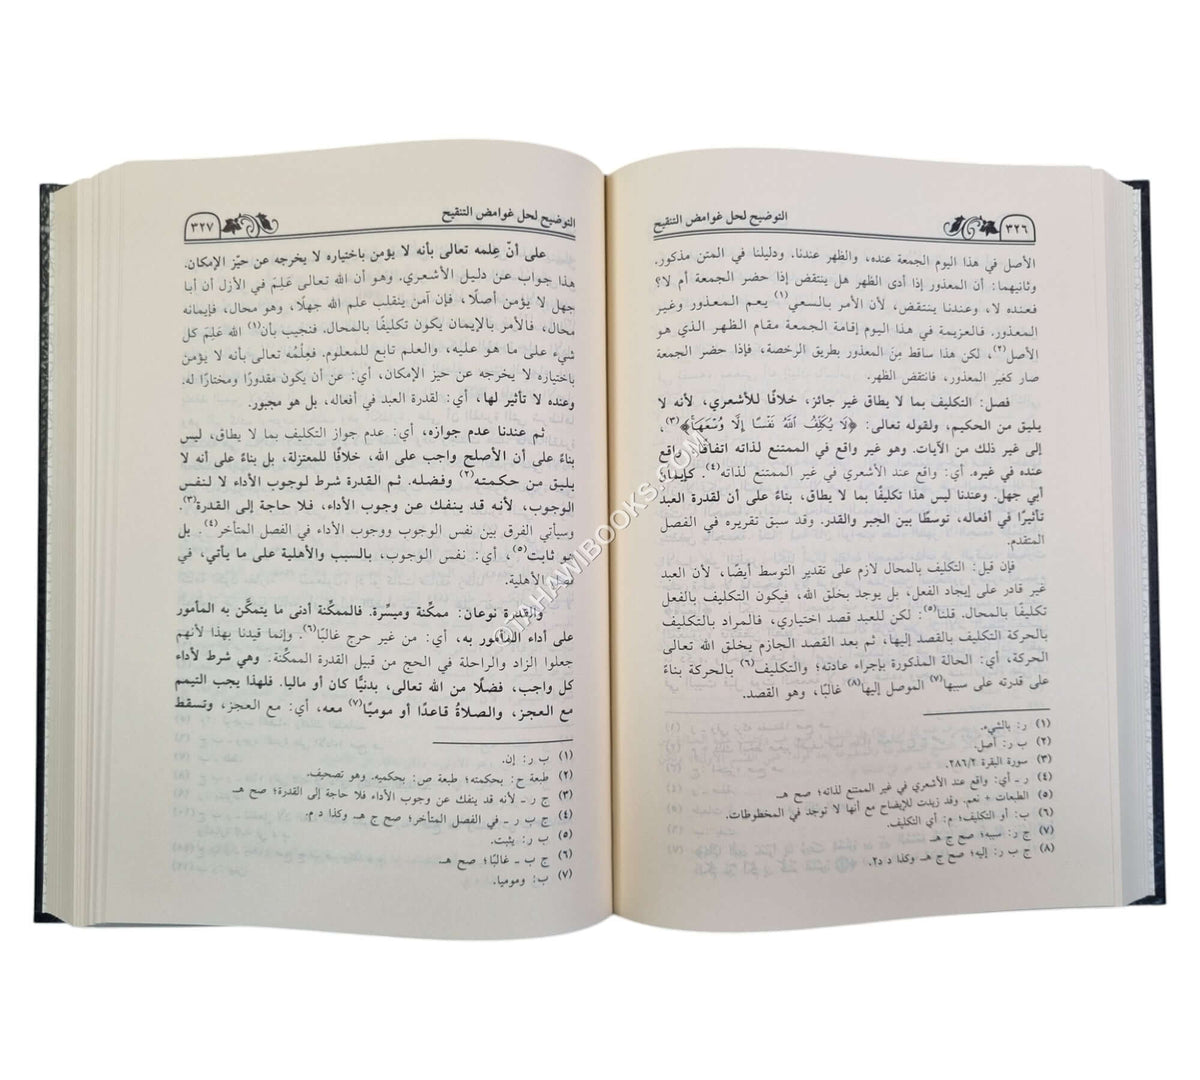 ٣٢٦
التوضيح لحل غوامض التنقيح
الأصل في هذا اليوم الجمعة عنده، والظهر عندنا. ودليلنا في المتن مذكور.
وثانيهما: أن المعذور إذا أدى الظهر هل ينتقض إذا حضر الجمعة أم لا؟
فعنده لا، وعندنا ينتقض، لأن الأمر بالسعي(١) يعم المعذور وغير
المعذور. فالعزيمة في هذا اليوم إقامة الجمعة مقام الظهر الذي هو
الأصل(٢)، لكن هذا ساقط مِنَ المعذور بطريق الرخصة، فإذا حضر الجمعة
صار كغير المعذور، فانتقض الظهر.
فصل: التكليف بما لا يطاق غير جائز، خلافًا للأشعري، لأنه لا
يليق من الحكيم، ولقوله تعالى: ﴿لَا يُكَلِّفُ ٱللَّهُ نَفْسًا إِلَّا وُسْعَهَا﴾(٣)،
إلى غير ذلك من الآيات. وهو غير واقع في الممتنع لذاته اتفاقًا. واقع
عنده في غيره. أي: واقع عند الأشعري في غير الممتنع لذاته(٤). كإيمان
أبي جهل. وعندنا ليس هذا تكليفًا بما لا يطاق، بناءً على أن لقدرة العبد
تأثيرًا في أفعاله، توسطًا بين الجبر والقدر. وقد سبق تقريره في الفصل
المتقدم.
فإن قيل: التكليف بالمحال لازم على تقدير التوسط أيضًا، لأن العبد
غير قادر على إيجاد الفعل، بل يوجد بخلق الله، فيكون التكليف بالفعل
تكليفًا بالمحال. قلنا(٥): لكن للعبد قصد اختياري، فالمراد بالتكليف
بالحركة التكليف بالقصد إليها، ثم بعد القصد الجازم يخلق الله تعالى
الحركة، أي: الحالة المذكورة بإجراء عادته؛ والتكليف(٦) بالحركة بناءً
على قدرته على سببها(٧) الموصل إليها(٨) غالبًا، وهو القصد.
(١) ر: بالشيء.
(٢) ب ر: أصل.
(٣) سورة البقرة ٢٨٦/٢.
(٤) ر ـ أي: واقع عند الأشعري في غير الممتنع لذاته؛ صح هـ.
(٥) الطبعات + نعم. وقد زيدت للإيضاح مع أنها لا توجد في المخطوطات.
(٦) ب: أو التكليف؛ م: أي التكليف.
(٧) ج ر: سببه؛ صح ج هـ.
(٨) ج ب ر: إليه؛ صح ج هـ. وكذا د د٢.
٣٢٧
التوضيح لحل غوامض التنقيح
على أنّ عِلمه تعالى بأنه لا يؤمن باختياره لا يخرجه عن حيّز الإمكان.
هذا جواب عن دليل الأشعري. وهو أن الله تعالى عَلِمَ في الأزل أن أبا
جهل لا يؤمن أصلًا، فإن آمن ينقلب علم الله جهلًا، وهو محال، فإيمانه
محال، فالأمر بالإيمان يكون تكليفًا بالمحال. فنجيب بأن(١) الله عَلِمَ كل
شيء على ما هو عليه، والعلم تابع للمعلوم. فعلْمُه تعالى بأنه لا يؤمن
باختياره لا يخرجه عن حيز الإمكان، أي: عن أن يكون مقدورًا ومختارًا له.
وعنده لا تأثير لها، أي: لقدرة العبد في أفعاله، بل هو مجبور.
ثم عندنا عدم جوازه، أي: عدم جواز التكليف بما لا يطاق، ليس
بناءً على أن الأصلح واجب على الله، خلافًا للمعتزلة، بل بناءً على أنه لا
يليق من حكمته(٢) وفضله. ثم القدرة شرط لوجوب الأداء لا لنفس
الوجوب، لأنه قد ينفك عن وجوب الأداء، فلا حاجة إلى القدرة(٣).
وسيأتي الفرق بين نفس الوجوب ووجوب الأداء في الفصل المتأخر(٤). بل
هو ثابت(٥)، أي: نفس الوجوب، بالسبب والأهلية على ما يأتي، في
فصل الأهلية.
والقدرة نوعان: ممكِّنة وميسِّرة. فالممكِّنة أدنى ما يتمكَّن به المأمور
على أداء المأمور به، أي: من غير حرج غالبًا(٦). وإنما قيدنا بهذا لأنهم
جعلوا الزاد والراحلة في الحج من قبيل القدرة الممكِّنة. وهي شرط لأداء
كل واجب، فضلًا من الله تعالى، بدنيًّا كان أو ماليا. فلهذا يجب التيمم
مع العجز، والصلاةُ قاعدًا أو موميًا(٧) معه، أي: مع العجز، وتسقط
(١) ب ر: إن.
(٢) طبعة ح: بحكمته؛ طبعة ص: بحكميه. وهو تصحيف.
(٣) ج ر ـ لأنه قد ينفك عن وجوب الأداء فلا حاجة إلى القدرة؛ صح هـ.
(٤) ج ب ر ـ في الفصل المتأخر؛ صح ج هـ. وكذا د م.
(٥) ب ر: يثبت.
(٦) ج ب ـ غالبًا؛ صح هـ.
(٧) ب: وموميا.